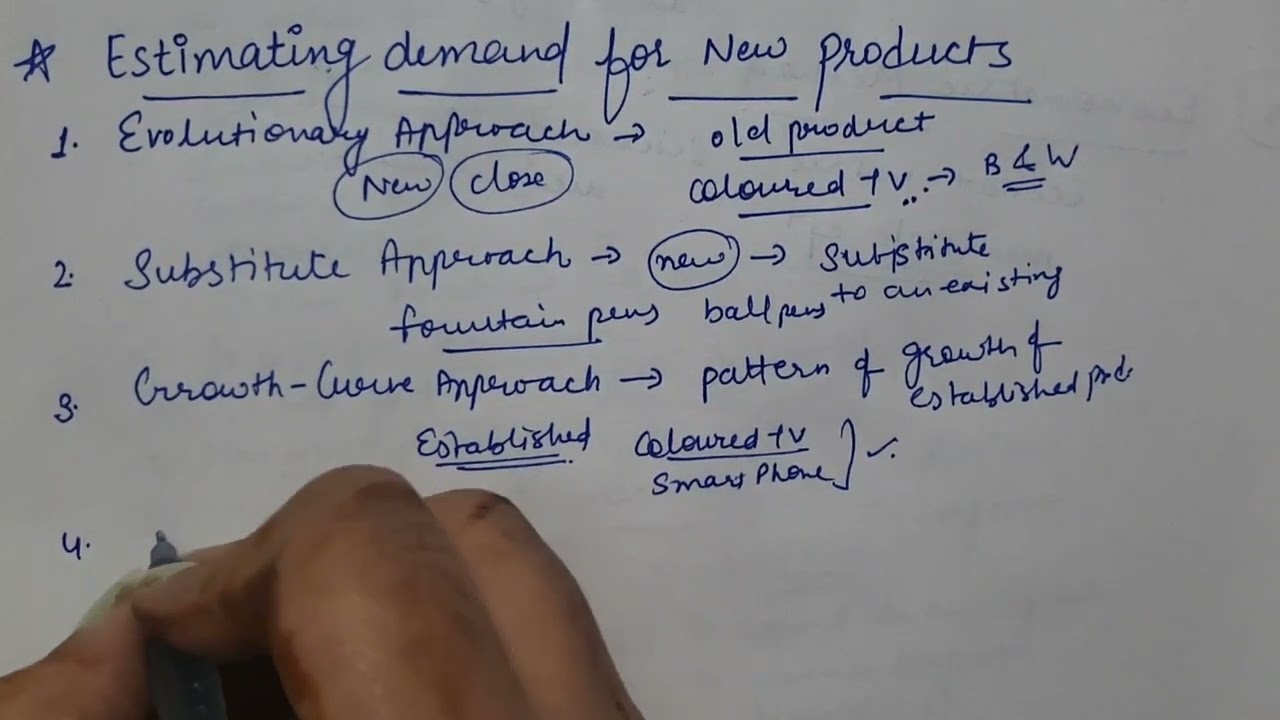 ☆ Estimating demand for New products
1. Evolutionary Approach → old product
New close coloured TV.. → B & W
2. Substitute Approach → new → Substitute
fountain pens ball pens to an existing
3. Growth-Curve Approach → pattern of growth of
Established prd.
Established coloured TV
Smart Phone
4.